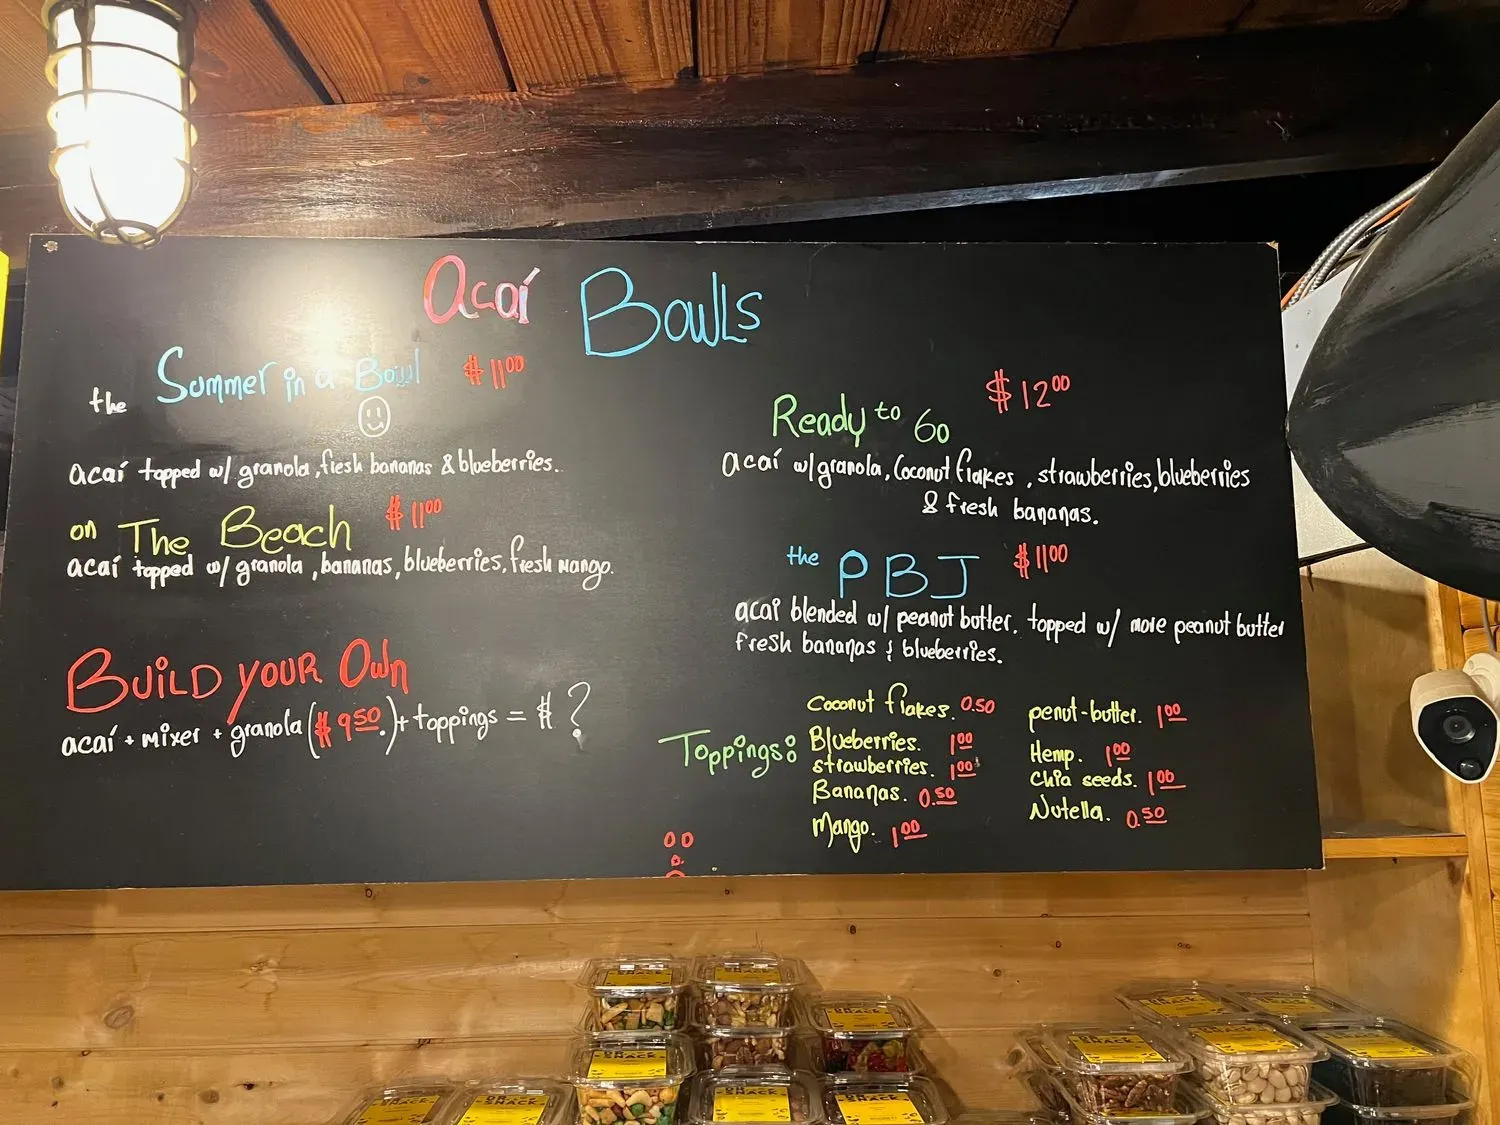 Acaí Bowls
the Summer in a Bowl $11.00
acaí topped w/ granola, fresh bananas & blueberries.
on The Beach $11.00
acaí topped w/ granola, bananas, blueberries, fresh mango.
Build your Own
acaí + mixer + granola ($9.50.) + toppings = $ ?
Ready to Go $12.00
acaí w/granola, coconut flakes, strawberries, blueberries
& fresh bananas.
the PBJ $11.00
acai blended w/ peanut butter. topped w/ more peanut butter
fresh bananas & blueberries.
Toppings:
Coconut flakes. 0.50
Blueberries. 1.00
strawberries. 1.00
Bananas. 0.50
Mango. 1.00
penut-butter. 1.00
Hemp. 1.00
chia seeds. 1.00
Nutella. 0.50